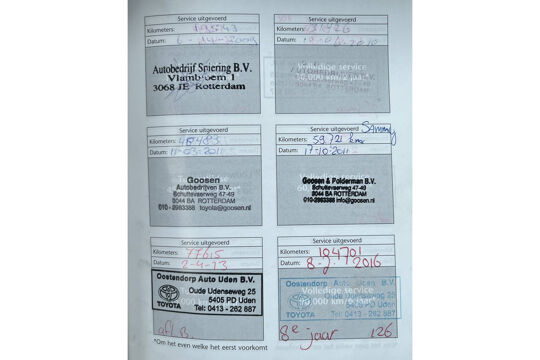 Service uitgevoerd
Kilometers:
Datum: 6 - 14 - 2009
Autobedrijf Spiering B.V.
Vlambloem 1
3068 JE Rotterdam
Service uitgevoerd
Kilometers:
Datum: 2010
Volledige service
30,000 km/2 jaar*
Service uitgevoerd
Kilometers:
Datum: 11-03-2011
Goosen
Autobedrijven B.V.
Schuttevaerweg 47-49
3044 BA ROTTERDAM
010-2983388 toyota@goosen.nl
Service uitgevoerd Sammy
Kilometers: 59721 km
Datum: 17-10-2011
Goosen & Polderman B.V.
Schuttevaerweg 47-49
3044 BA ROTTERDAM
010-2983388 info@goosen.nl
Service uitgevoerd
Kilometers: 77615
Datum: 2-4-13
Oostendorp Auto Uden B.V.
Oude Udenseweg 25
5405 PD Uden
TOYOTA Tel: 0413 - 262 887
afl B.
Service uitgevoerd
Kilometers: 104701
Datum: 8-7-2016
Oostendorp Auto Uden B.V.
Oude Udenseweg 25
5405 PD Uden
TOYOTA Tel: 0413 - 262 887
8e jaar 126
*Om het even welke het eerst voorkomt